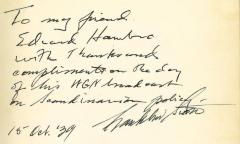 To my friend
Edvard Hambro
with Thanks and
compliments on the day
of his WGN broadcast
on Scandinavian policy -
15 Oct. '39